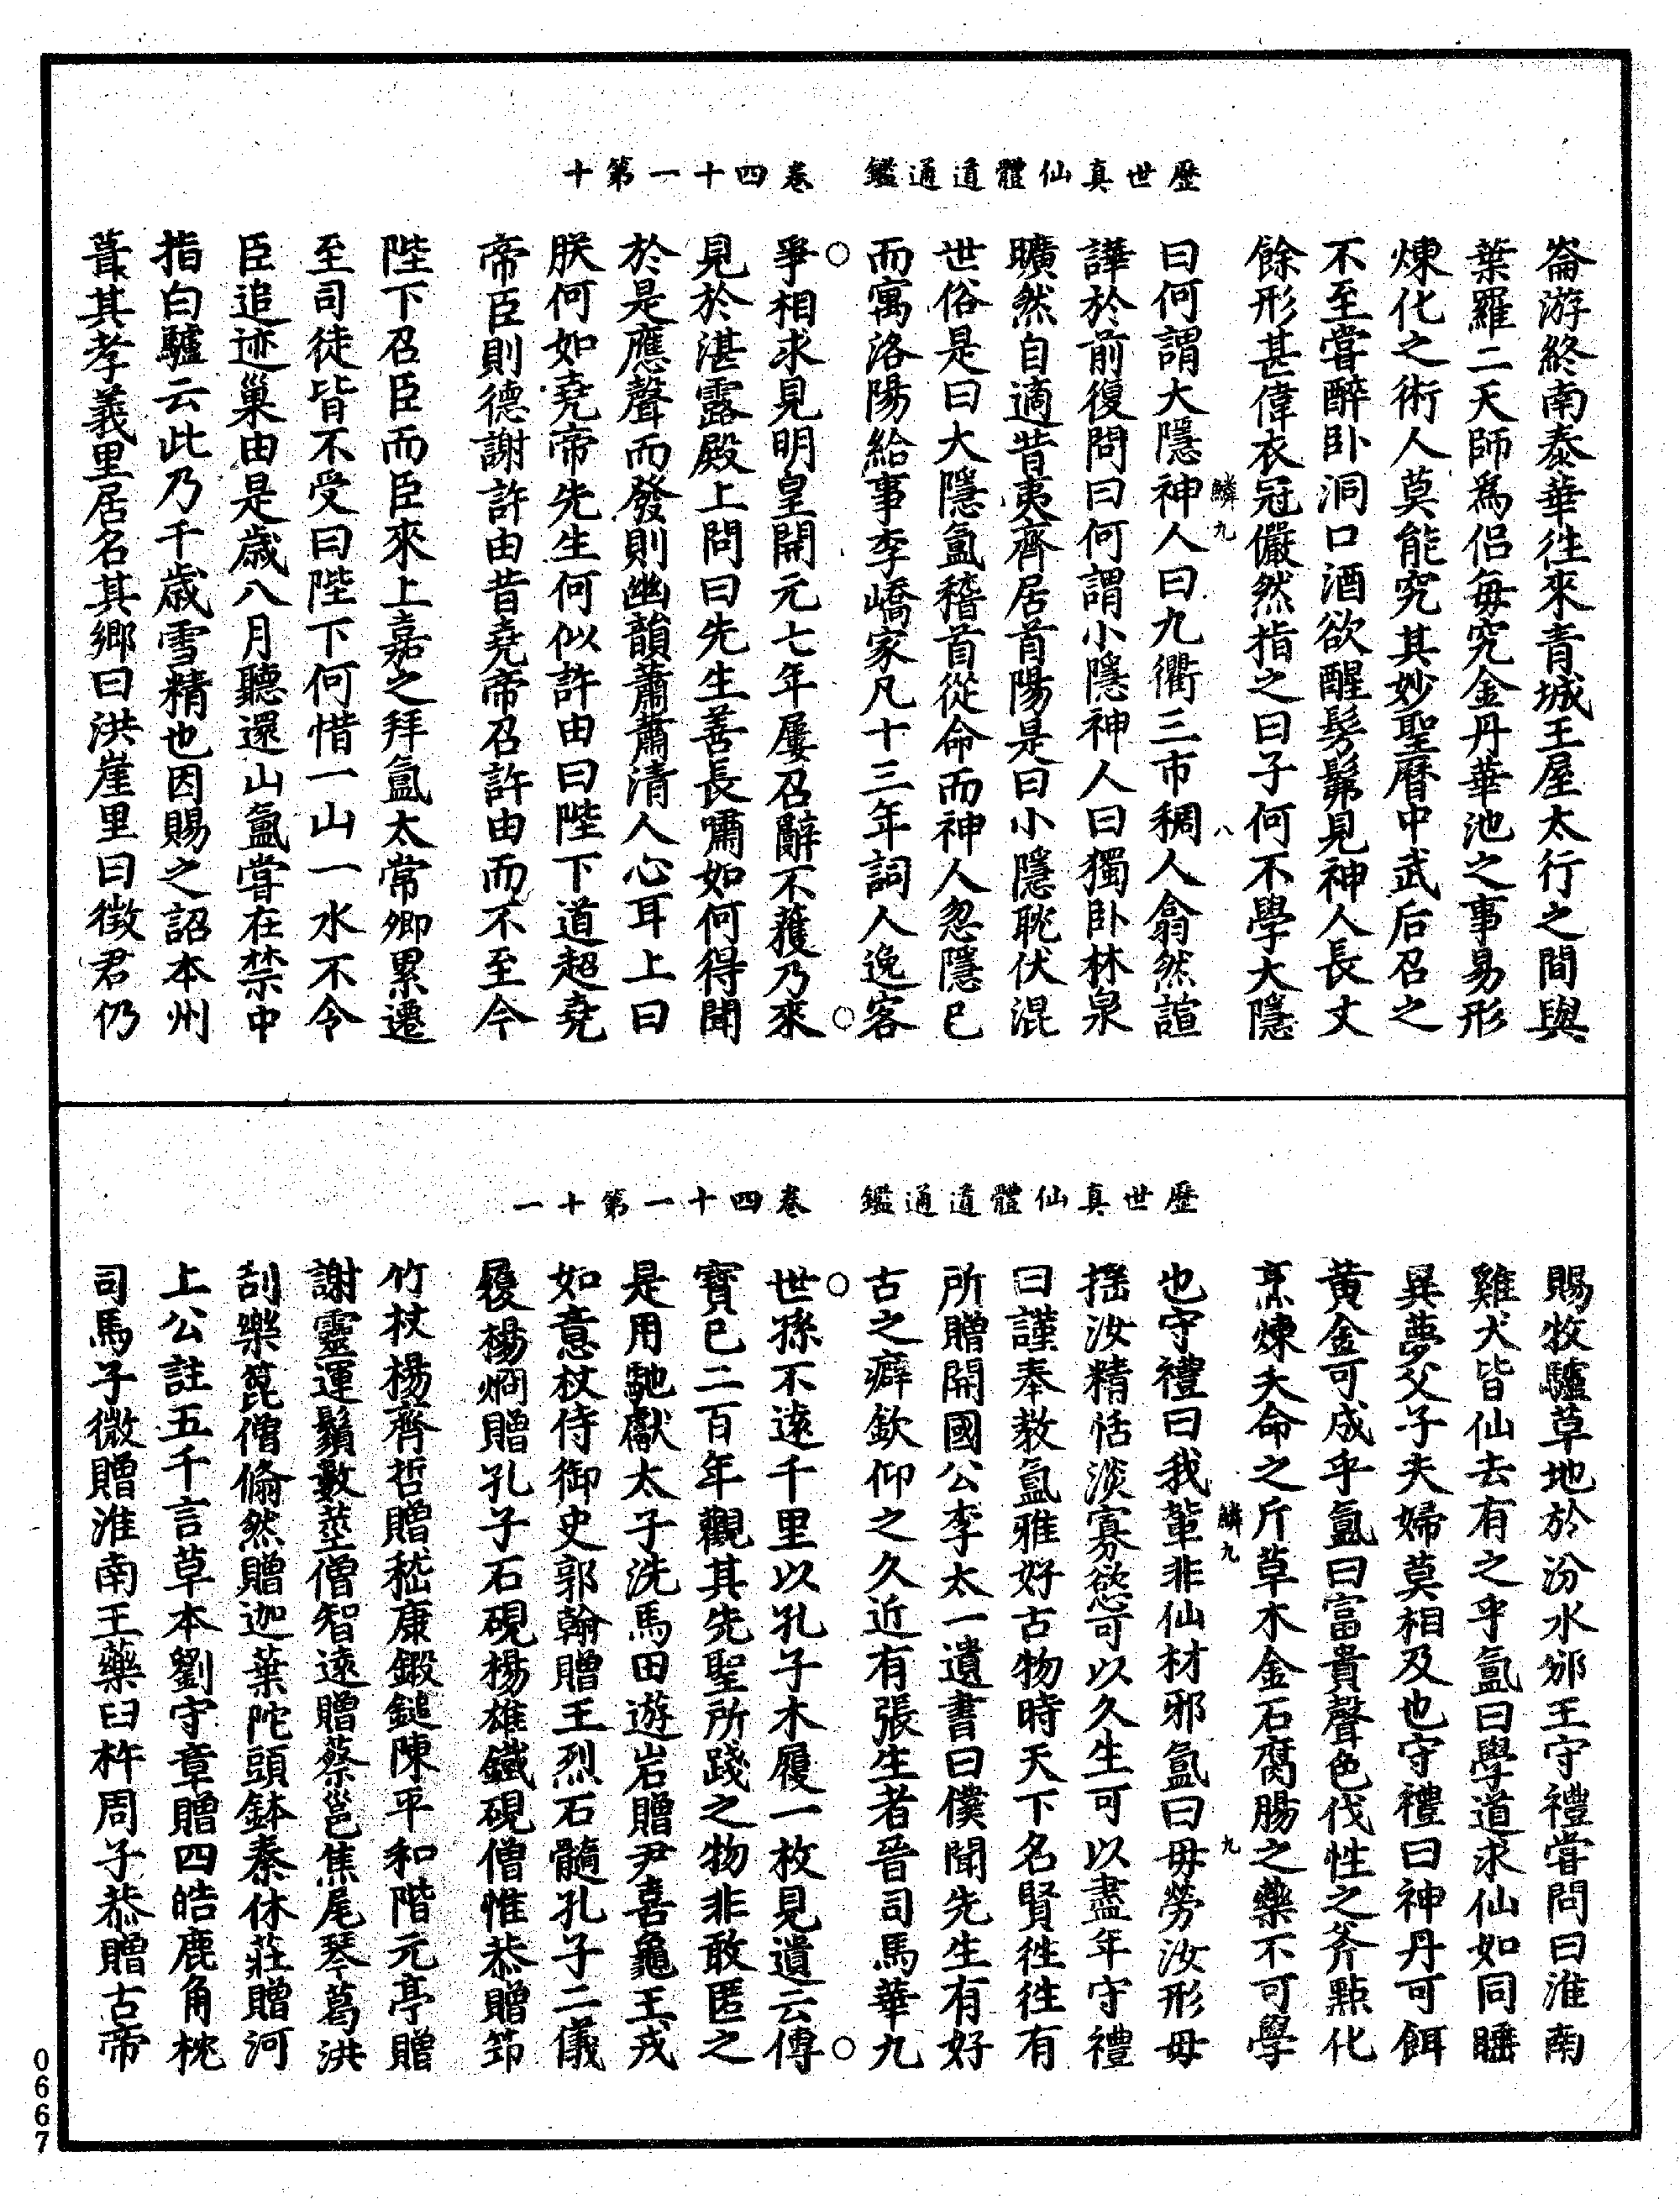 歷世真仙體道通鑑　卷四十一第十
崙游終南泰華往來青城王屋太行之間與
葉羅二天師為侶每究金丹華池之事易形
煉化之術人莫能究其妙聖曆中武后召之
不至嘗醉卧洞口酒欲醒髣髴見神人長丈
餘形甚偉衣冠儼然指之曰子何不學大隱
鱗九　八
曰何謂大隱神人曰九衢三市稠人翕然諠
譁於前復問曰何謂小隱神人曰獨卧林泉
曠然自適昔夷齊居首陽是曰小隱耽伏混
世俗是曰大隱氳稽首從命而神人忽隱已
而寓洛陽給事李嶠家凡十三年詞人逸客
爭相求見明皇開元七年屢召辭不獲乃來
見於湛露殿上問曰先生善長嘯如何得聞
於是應聲而發則幽韻蕭蕭清人心耳上曰
朕何如堯帝先生何似許由曰陛下道超堯
帝臣則德謝許由昔堯帝召許由而不至今
陛下召臣而臣來上嘉之拜氳太常卿累遷
至司徒皆不受曰陛下何惜一山一水不令
臣追迹巢由是歲八月聽還山氳嘗在禁中
指白驢云此乃千歲雪精也因賜之詔本州
葺其孝義里居名其鄉曰洪崖里曰徵君仍
歷世真仙體道通鑑　卷四十一第十一
賜牧驢草地於汾水邠王守禮嘗問曰淮南
雞犬皆仙去有之乎氳曰學道求仙如同睡
異夢父子夫婦莫相及也守禮曰神丹可餌
黃金可成乎氳曰富貴聲色伐性之斧點化
烹煉夭命之斤草木金石腐腸之藥不可學
鱗九　九
也守禮曰我輩非仙材邪氳曰毋勞汝形毋
搖汝精恬淡寡慾可以久生可以盡年守禮
曰謹奉教氳雅好古物時天下名賢往往有
所贈開國公李太一遺書曰僕聞先生有好
古之癖欽仰之久近有張生者晉司馬華九
世孫不遠千里以孔子木履一枚見遺云傳
寶已二百年觀其先聖所踐之物非敢匿之
是用馳獻太子洗馬田遊岩贈尹喜龜王戎
如意杖侍御史郭翰贈王烈石髓孔子二儀
履楊炯贈孔子石硯楊雄鐵硯僧惟恭贈筇
竹杖楊齊哲贈嵇康鍛鎚陳平和階元亭贈
謝靈運鬚數莖僧智遠贈蔡邕焦尾琴葛洪
刮藥箆僧翛然贈迦葉陀頭鉢秦休莊贈河
上公註五千言草本劉守章贈四皓鹿角枕
司馬子微贈淮南王藥臼杵周子恭贈古帝
0667